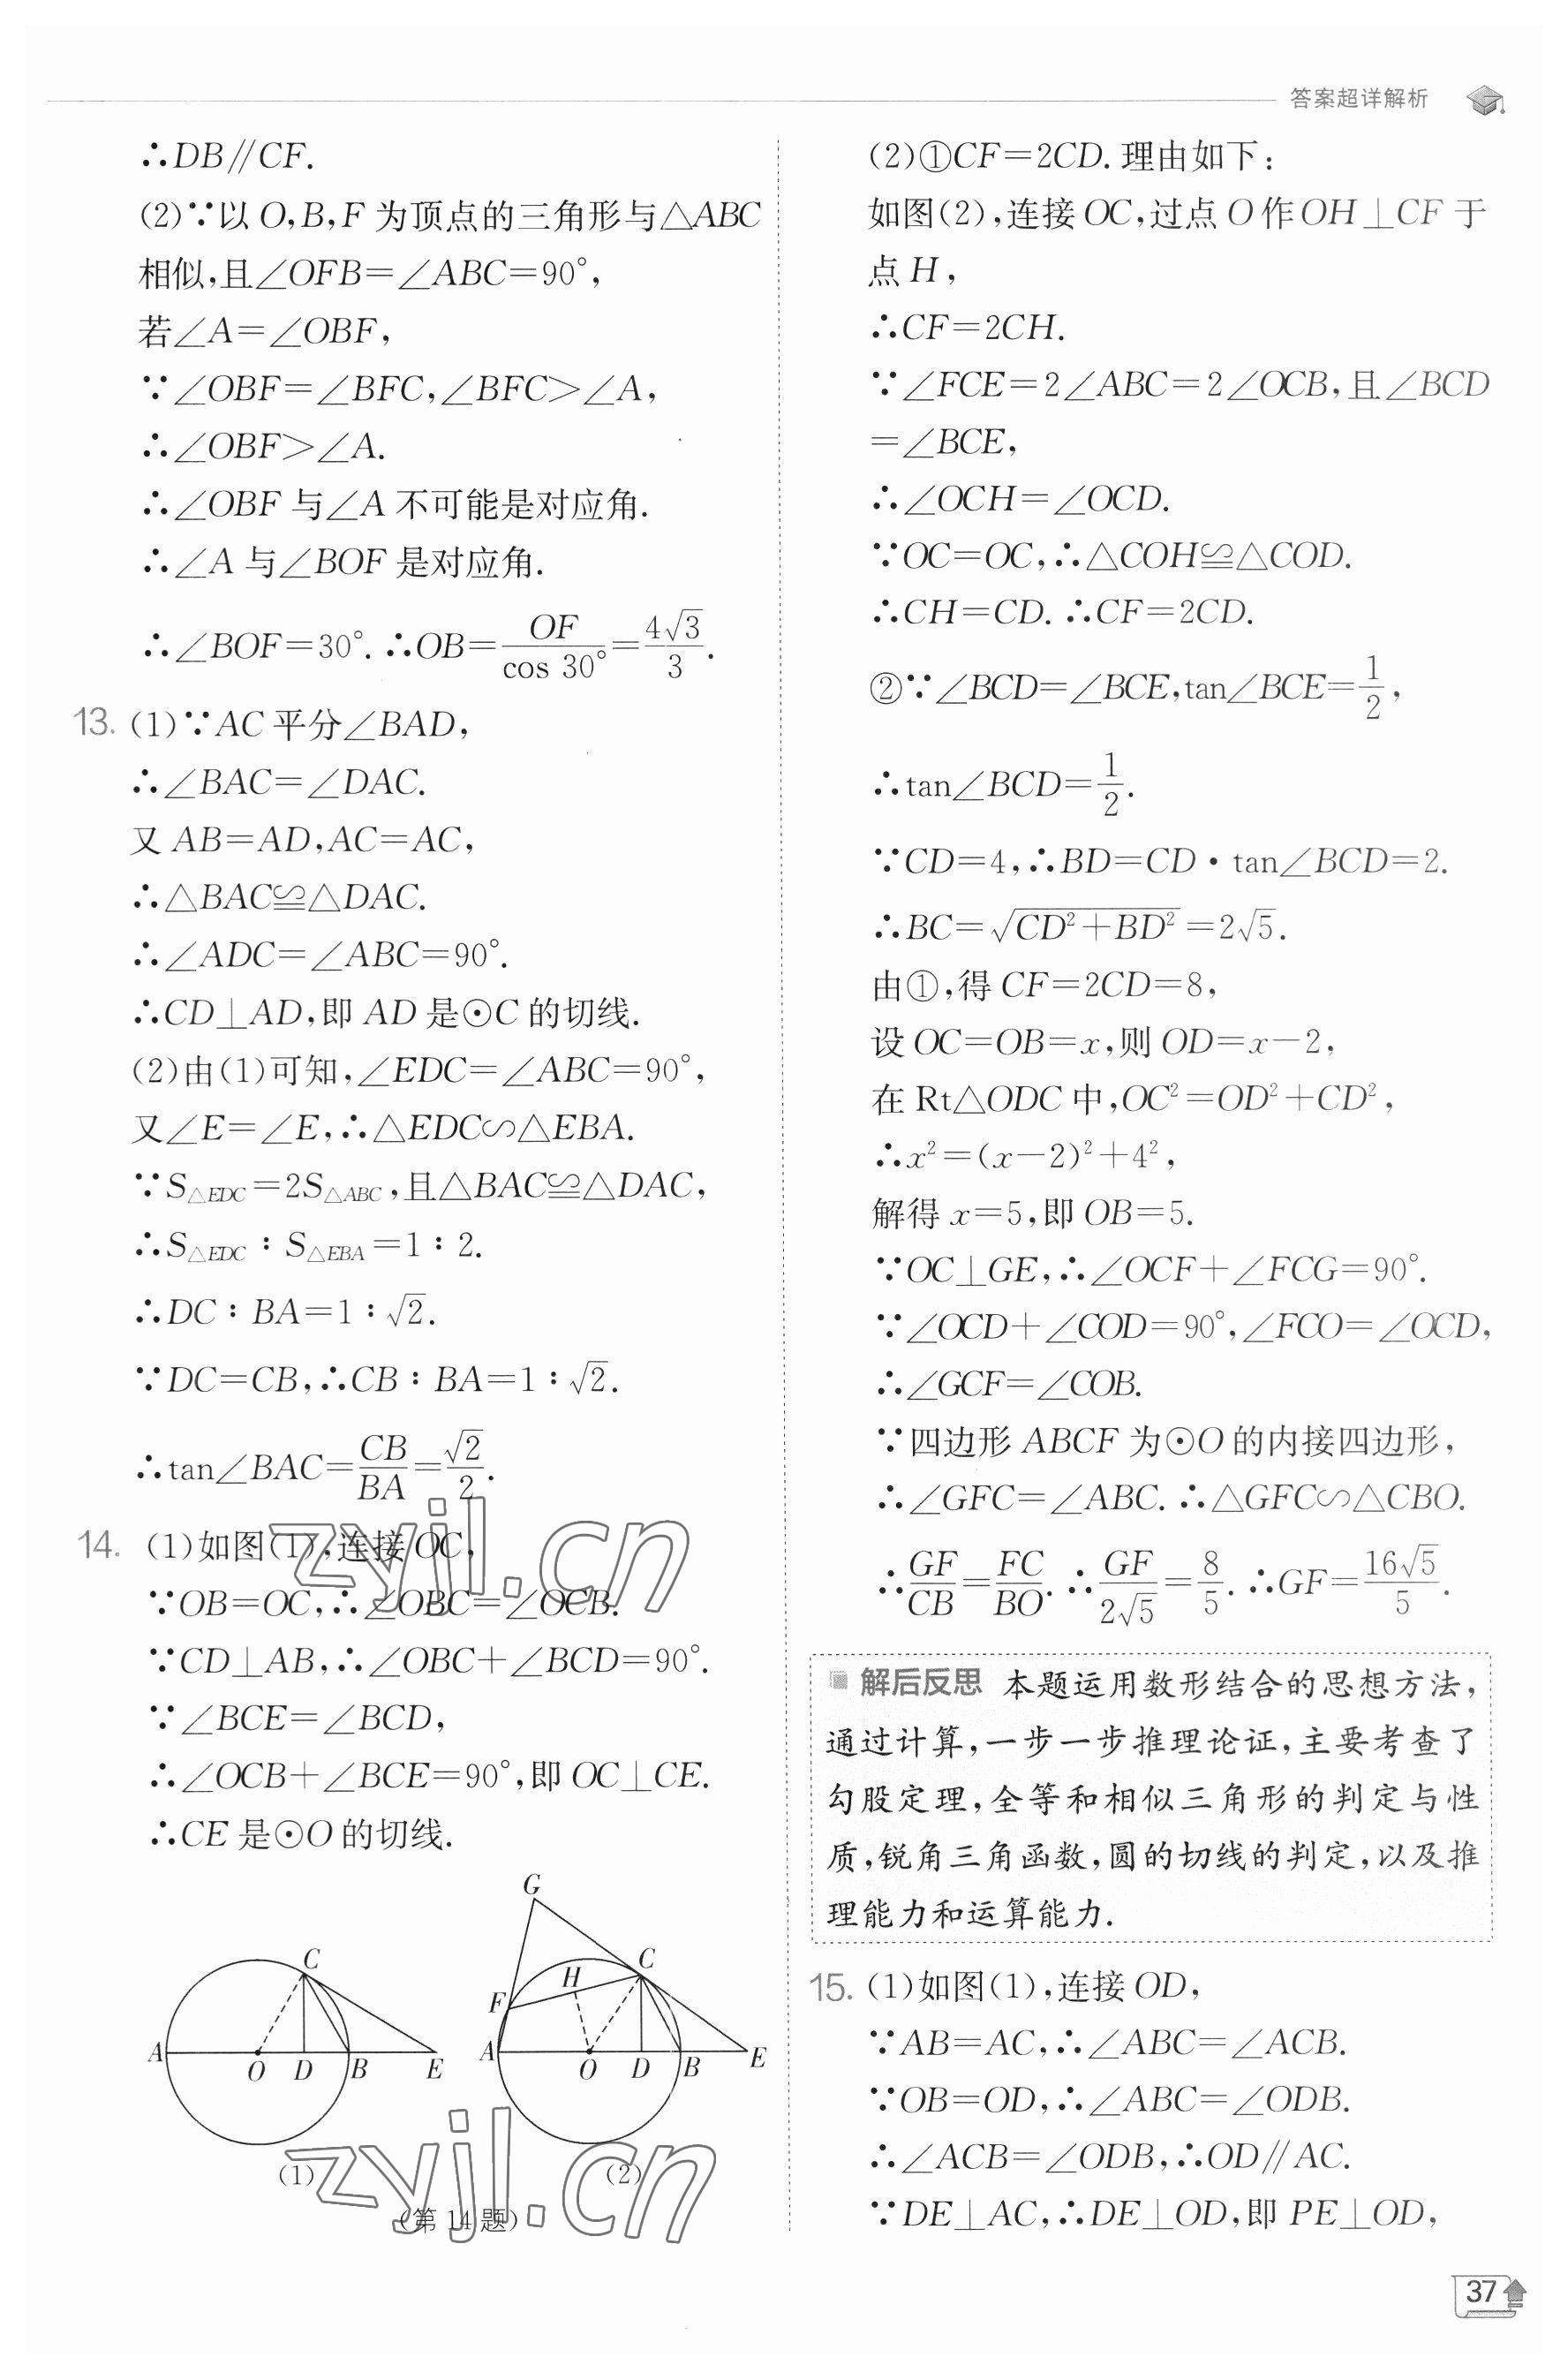 答案超详解析
∴DB∥CF.
(2)∵以 O,B,F 为顶点的三角形与△ABC
相似,且∠OFB=∠ABC=90°,
若∠A=∠OBF,
∵∠OBF=∠BFC,∠BFC>∠A,
∴∠OBF>∠A.
∴∠OBF 与∠A 不可能是对应角.
∴∠A 与∠BOF 是对应角.
∴∠BOF=30°. ∴OB=OF/cos 30°=4√3/3.
13. (1)∵AC 平分∠BAD,
∴∠BAC=∠DAC.
又 AB=AD,AC=AC,
∴△BAC≌△DAC.
∴∠ADC=∠ABC=90°.
∴CD⊥AD,即 AD 是⊙C 的切线.
(2)由(1)可知,∠EDC=∠ABC=90°,
又∠E=∠E,∴△EDC∽△EBA.
∵S△EDC=2S△ABC,且△BAC≌△DAC,
∴S△EDC∶S△EBA=1∶2.
∴DC∶BA=1∶√2.
∵DC=CB,∴CB∶BA=1∶√2.
∴tan∠BAC=CB/BA=√2/2.
14. (1)如图(1),连接OC,
∵OB=OC,∴∠OBC=∠OCB.
∵CD⊥AB,∴∠OBC+∠BCD=90°.
∵∠BCE=∠BCD,
∴∠OCB+∠BCE=90°,即 OC⊥CE.
∴CE 是⊙O 的切线.
C
A O D B E
(1)
G
H C
F
A O D B E
(2)
(第 14 题)
zyjl.cn
zyjl.cn
(2)①CF=2CD. 理由如下:
如图(2),连接 OC,过点 O 作 OH⊥CF 于
点 H,
∴CF=2CH.
∵∠FCE=2∠ABC=2∠OCB,且∠BCD
=∠BCE,
∴∠OCH=∠OCD.
∵OC=OC,∴△COH≌△COD.
∴CH=CD. ∴CF=2CD.
②∵∠BCD=∠BCE,tan∠BCE=1/2,
∴tan∠BCD=1/2.
∵CD=4,∴BD=CD·tan∠BCD=2.
∴BC=√(CD²+BD²)=2√5.
由①,得 CF=2CD=8,
设 OC=OB=x,则 OD=x-2,
在 Rt△ODC 中,OC²=OD²+CD²,
∴x²=(x-2)²+4²,
解得 x=5,即 OB=5.
∵OC⊥GE,∴∠OCF+∠FCG=90°.
∵∠OCD+∠COD=90°,∠FCO=∠OCD,
∴∠GCF=∠COB.
∵四边形 ABCF 为⊙O 的内接四边形,
∴∠GFC=∠ABC. ∴△GFC∽△CBO.
∴GF/CB=FC/BO. ∴GF/2√5=8/5. ∴GF=16√5/5.
解后反思 本题运用数形结合的思想方法,
通过计算,一步一步推理论证,主要考查了
勾股定理,全等和相似三角形的判定与性
质,锐角三角函数,圆的切线的判定,以及推
理能力和运算能力.
15. (1)如图(1),连接 OD,
∵AB=AC,∴∠ABC=∠ACB.
∵OB=OD,∴∠ABC=∠ODB.
∴∠ACB=∠ODB,∴OD∥AC.
∵DE⊥AC,∴DE⊥OD,即 PE⊥OD,
37